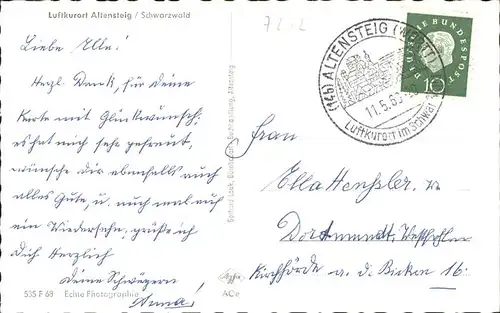 Luftkurort Altensteig / Schwarzwald
72-2
Liebe Elle!
Herzl. Dank, für Deine
Karte mit Glückwunsch;
es hat mich sehr gefreut,
wünsche Dir ebenfalls auch
alles Gute, u. auch mal auf
ein Wiedersehn, grüße ich
Dich Herzlich
Deine Schwägerin
Anna,
535 F 68 Echte Photographie
Buchhandlung, Altensteig
Agfa
ACe
(14b) ALTENSTEIG (WÜRTT)
11.5.60
Luftkurort im Schwarzw
DEUTSCHE BUNDESPOST
10
Frau
Ella
Dortmund, Westfalen
Kirchhörde a. d. Bicken 16.